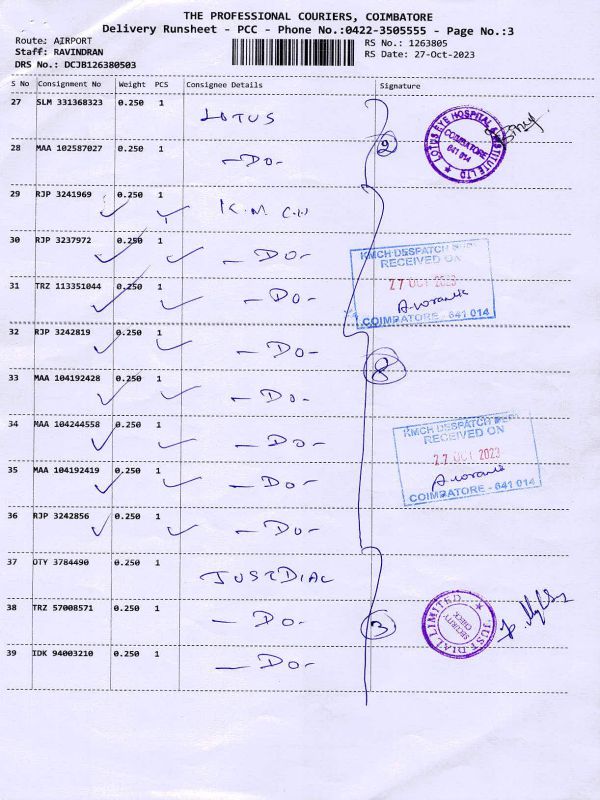 THE PROFESSIONAL COURIERS, COIMBATORE
Delivery Runsheet - PCC - Phone No.:0422-3505555 - Page No.:3
Route: AIRPORT RS No.: 1263805
Staff: RAVINDRAN RS Date: 27-Oct-2023
DRS No.: DCJB126380503
S No Consignment No Weight PCS Consignee Details Signature
27 SLM 331368323 0.250 1 LOTUS
LOTUS EYE HOSPITAL & INSTITUTE LTD
COIMBATORE
641 014
28 MAA 102587027 0.250 1 -Do- 2
29 RJP 3241969 0.250 1 K.M.C.H
30 RJP 3237972 0.250 1 -Do-
KMCH DESPATCH
RECEIVED ON
27 OCT 2023
COIMBATORE - 641 014
31 TRZ 113351044 0.250 1 -Do-
32 RJP 3242819 0.250 1 -Do- 8
33 MAA 104192428 0.250 1 -Do-
34 MAA 104244558 0.250 1 -Do-
KMCH DESPATCH
RECEIVED ON
27 OCT 2023
COIMBATORE - 641 014
35 MAA 104192419 0.250 1 -Do-
36 RJP 3242856 0.250 1 -Do-
37 OTY 3784490 0.250 1 JUSTDIAL
38 TRZ 57008571 0.250 1 -Do- 3
JUST DIAL LIMITED
SECURITY
CHECK
39 IDK 94003210 0.250 1 -Do-